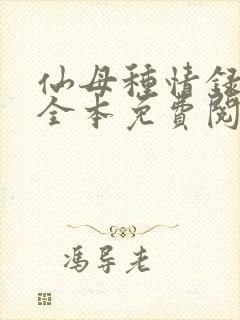 仙母種情録
全本免費閱
馮导老